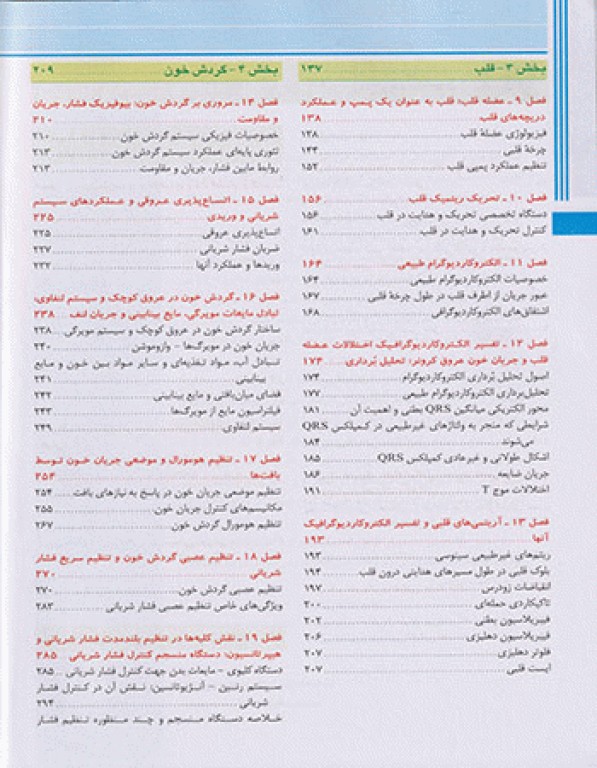 بخش ۳- قلب ۱۳۷
فصل ۹ ـ عضله قلب؛ قلب به عنوان یک پمپ و عملکرد
دریچه‌های قلب ۱۳۸
فیزیولوژی عضلهٔ قلب ۱۳۸
چرخهٔ قلبی ۱۴۴
تنظیم عملکرد پمپی قلب ۱۵۲
فصل ۱۰ ـ تحریک ریتمیک قلب ۱۵۶
دستگاه تخصصی تحریک و هدایت در قلب ۱۵۶
کنترل تحریک و هدایت در قلب ۱۶۱
فصل ۱۱ ـ الکتروکاردیوگرام طبیعی ۱۶۴
خصوصیات الکتروکاردیوگرام طبیعی ۱۶۴
عبور جریان از اطراف قلب در طول چرخهٔ قلبی ۱۶۷
اشتقاق‌های الکتروکاردیوگرافی ۱۶۸
فصل ۱۲ ـ تفسیر الکتروکاردیوگرافیک اختلالات عضله
قلب و جریان خون عروق کرونر: تحلیل بُرداری ۱۷۴
اصول تحلیل بُرداری الکتروکاردیوگرام ۱۷۴
تحلیل‌برداری الکتروکاردیوگرام طبیعی ۱۷۷
محور الکتریکی میانگین QRS بطنی و اهمیت آن ۱۸۱
شرایطی که منجر به ولتاژهای غیرطبیعی در کمپلکس QRS
می‌شوند ۱۸۴
اشکال طولانی و غیرعادی کمپلکس QRS ۱۸۵
جریان ضایعه ۱۸۶
اختلالات موج T ۱۹۱
فصل ۱۳ ـ آریتمی‌های قلبی و تفسیر الکتروکاردیوگرافیک
آنها ۱۹۳
ریتم‌های غیرطبیعی سینوسی ۱۹۳
بلوک قلبی در طول مسیرهای هدایتی درون قلب ۱۹۴
انقباضات زودرس ۱۹۷
تاکیکاردی حمله‌ای ۲۰۰
فیبریلاسیون بطنی ۲۰۲
فیبریلاسیون دهلیزی ۲۰۶
فلوتر دهلیزی ۲۰۷
ایست قلبی ۲۰۷
بخش ۴- گردش خون ۲۰۹
فصل ۱۴ ـ مروری بر گردش خون؛ بیوفیزیک فشار، جریان
و مقاومت ۲۱۰
خصوصیات فیزیکی سیستم گردش خون ۲۱۰
تئوری پایه‌ای عملکرد سیستم گردش خون ۲۱۳
روابط مابین فشار، جریان و مقاومت ۲۱۳
فصل ۱۵ ـ اتساع‌پذیری عروقی و عملکردهای سیستم
شریانی و وریدی ۲۲۵
اتساع‌پذیری عروقی ۲۲۵
ضربان فشار شریانی ۲۲۷
وریدها و عملکرد آنها ۲۳۲
فصل ۱۶ ـ گردش خون در عروق کوچک و سیستم لنفاوی،
تبادل مایعات مویرگی، مایع بینابینی و جریان لنف ۲۳۸
ساختار گردش خون در عروق کوچک و سیستم مویرگی ۲۳۸
جریان خون در مویرگ‌ها – وازوموشن ۲۴۰
تبادل آب، مواد تغذیه‌ای و سایر مواد بین خون و مایع
بینابینی ۲۴۱
فضای میان‌بافتی و مایع بینابینی ۲۴۲
فیلتراسیون مایع از مویرگ‌ها ۲۴۳
سیستم لنفاوی ۲۴۹
فصل ۱۷ ـ تنظیم هومورال و موضعی جریان خون توسط
بافت‌ها ۲۵۴
تنظیم موضعی جریان خون در پاسخ به نیازهای بافت ۲۵۴
مکانیسم‌های کنترل جریان خون ۲۵۵
تنظیم هومورال گردش خون ۲۶۷
فصل ۱۸ ـ تنظیم عصبی گردش خون و تنظیم سریع فشار
شریانی ۲۷۰
تنظیم عصبی گردش خون ۲۷۰
ویژگی‌های خاص تنظیم عصبی فشار شریانی ۲۸۲
فصل ۱۹ ـ نقش کلیه‌ها در تنظیم بلندمدت فشار شریانی و
هیپرتانسیون: دستگاه منسجم کنترل فشار شریانی ۲۸۵
دستگاه کلیوی – مایعات بدن جهت کنترل فشار شریانی ۲۸۵
سیستم رنین – آنژیوتانسین: نقش آن در کنترل فشار
شریانی ۲۹۴
خلاصه دستگاه منسجم و چند منظوره تنظیم فشار